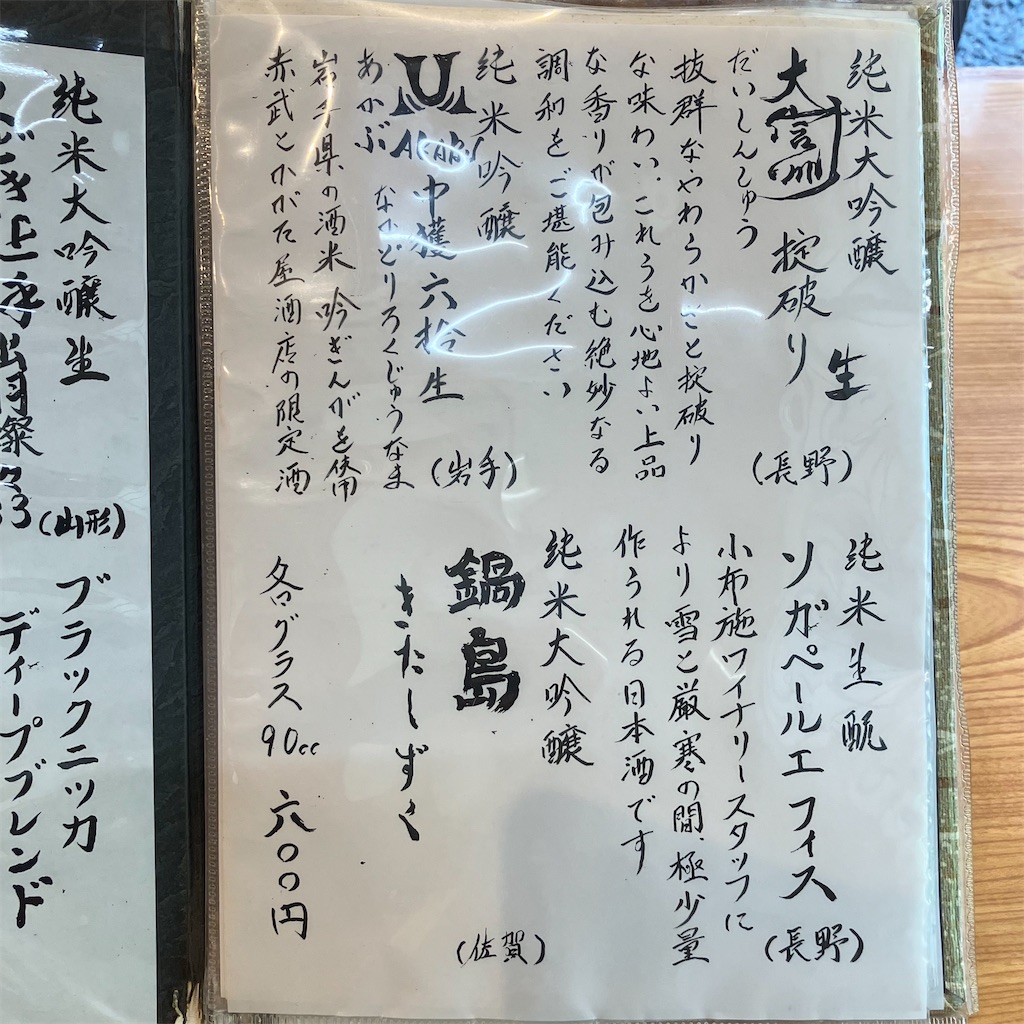 純米大吟醸
大信州 掟破り 生
(長野)
だいしんしゅう
抜群なやわらかさと掟破り
な味わい、これらを心地よい上品
な香りが包み込む絶妙なる
調和をご堪能ください
純米吟醸
AKABU 中獲六拾 生
(岩手)
あかぶ なかどりろくじゅうなま
岩手県の酒米 吟ぎんがを使用
赤武とかがた屋酒店の限定酒
純米生酛
ソガペールエフィス
(長野)
小布施ワイナリースタッフに
より雪と厳寒の間、極少量
作られる日本酒です
純米大吟醸
鍋島
きたしずく
(佐賀)
各グラス 90cc 六〇〇円
純米大吟醸 生
(山形)
ブラックニッカ
ディープブレンド